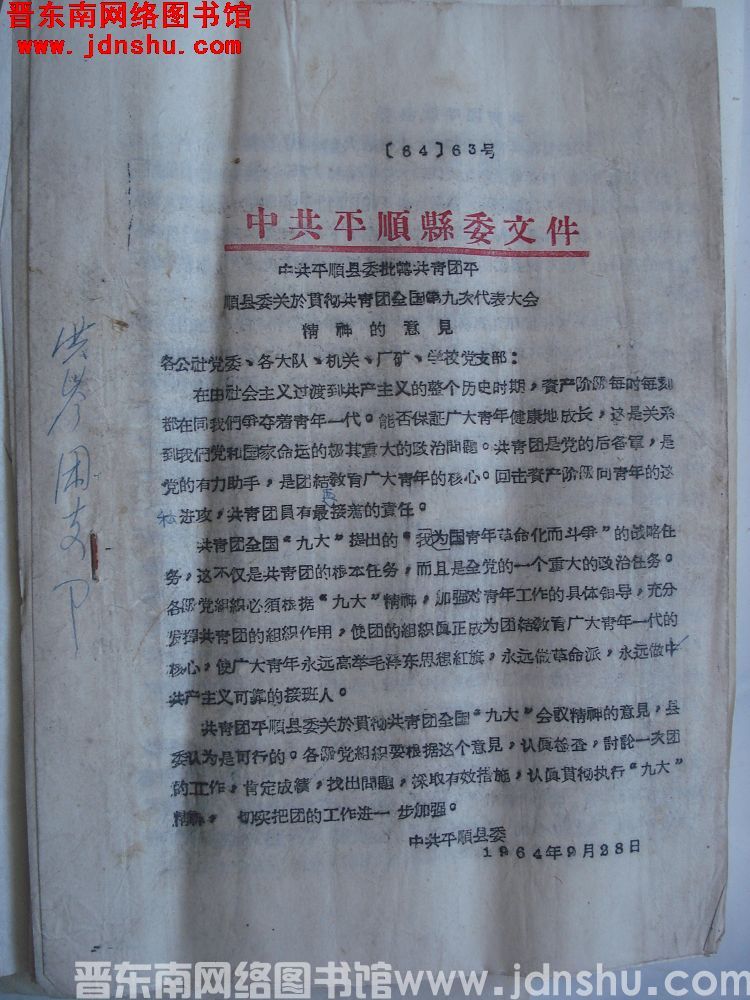 晋东南网络图书馆
www.jdnshu.com
〔64〕63号
中共平順縣委文件
中共平順县委批轉共青团平
順县委关於貫彻共青团全国第九次代表大会
精神的意見
各公社党委、各大队、机关、厂矿、学校党支部：
在由社会主义过渡到共产主义的整个历史时期，資产阶級每时每刻
都在同我們爭夺着青年一代。能否保証广大青年健康地成长，这是关系
到我們党和国家命运的极其重大的政治問題。共青团是党的后备軍，是
党的有力助手，是团結教育广大青年的核心。回击資产阶級向青年的这
种进攻，共青团員有最直接的責任。
共青团全国“九大”提出的“为我国青年革命化而斗爭”的战略任
务，这不仅是共青团的根本任务，而且是全党的一个重大的政治任务。
各級党組织必須根据“九大”精神，加强对青年工作的具体領导，充分
发揮共青团的組织作用，使团的組织眞正成为团結教育广大青年一代的
核心，使广大青年永远高举毛澤东思想紅旗，永远做革命派，永远做
共产主义可靠的接班人。
共青团平順县委关於貫彻共青团全国“九大”会議精神的意見，县
委认为是可行的。各級党組织要根据这个意見，认眞检查，討論一次团
的工作，肯定成績，找出問題，採取有效措施，认眞貫彻执行“九大”
精神，切实把团的工作进一步加强。
中共平順县委
1964年9月28日
晋东南网络图书馆www.jdnshu.com